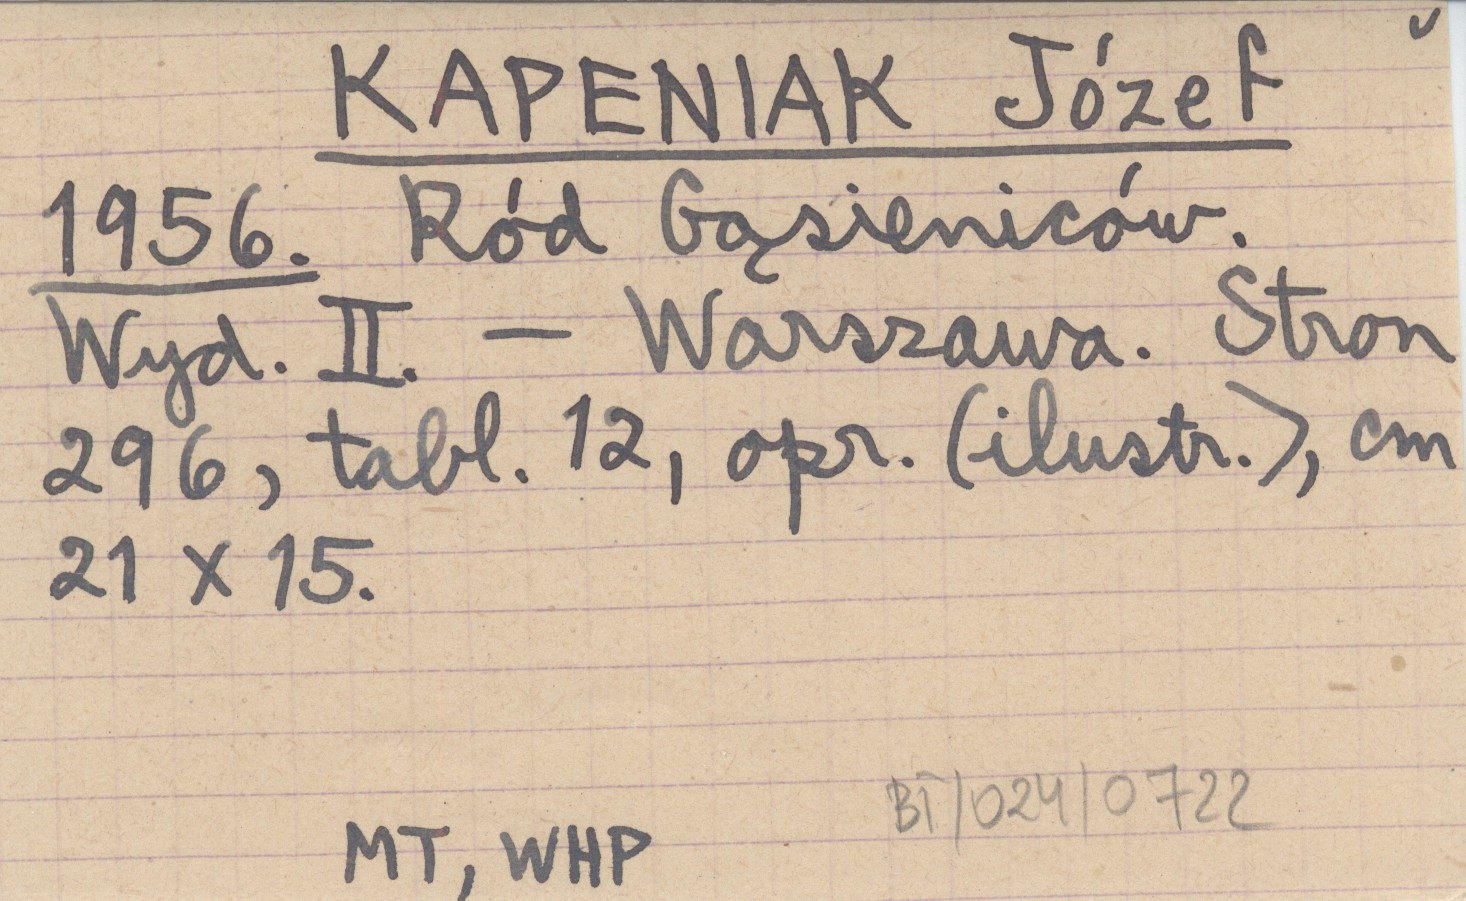 KAPENIAK Józef
1956. Ród Gąsieniców.
Wyd. II. — Warszawa. Stron
296, tabl. 12, opr. (ilustr.), cm
21 x 15.
BT/024/0722
MT, WHP